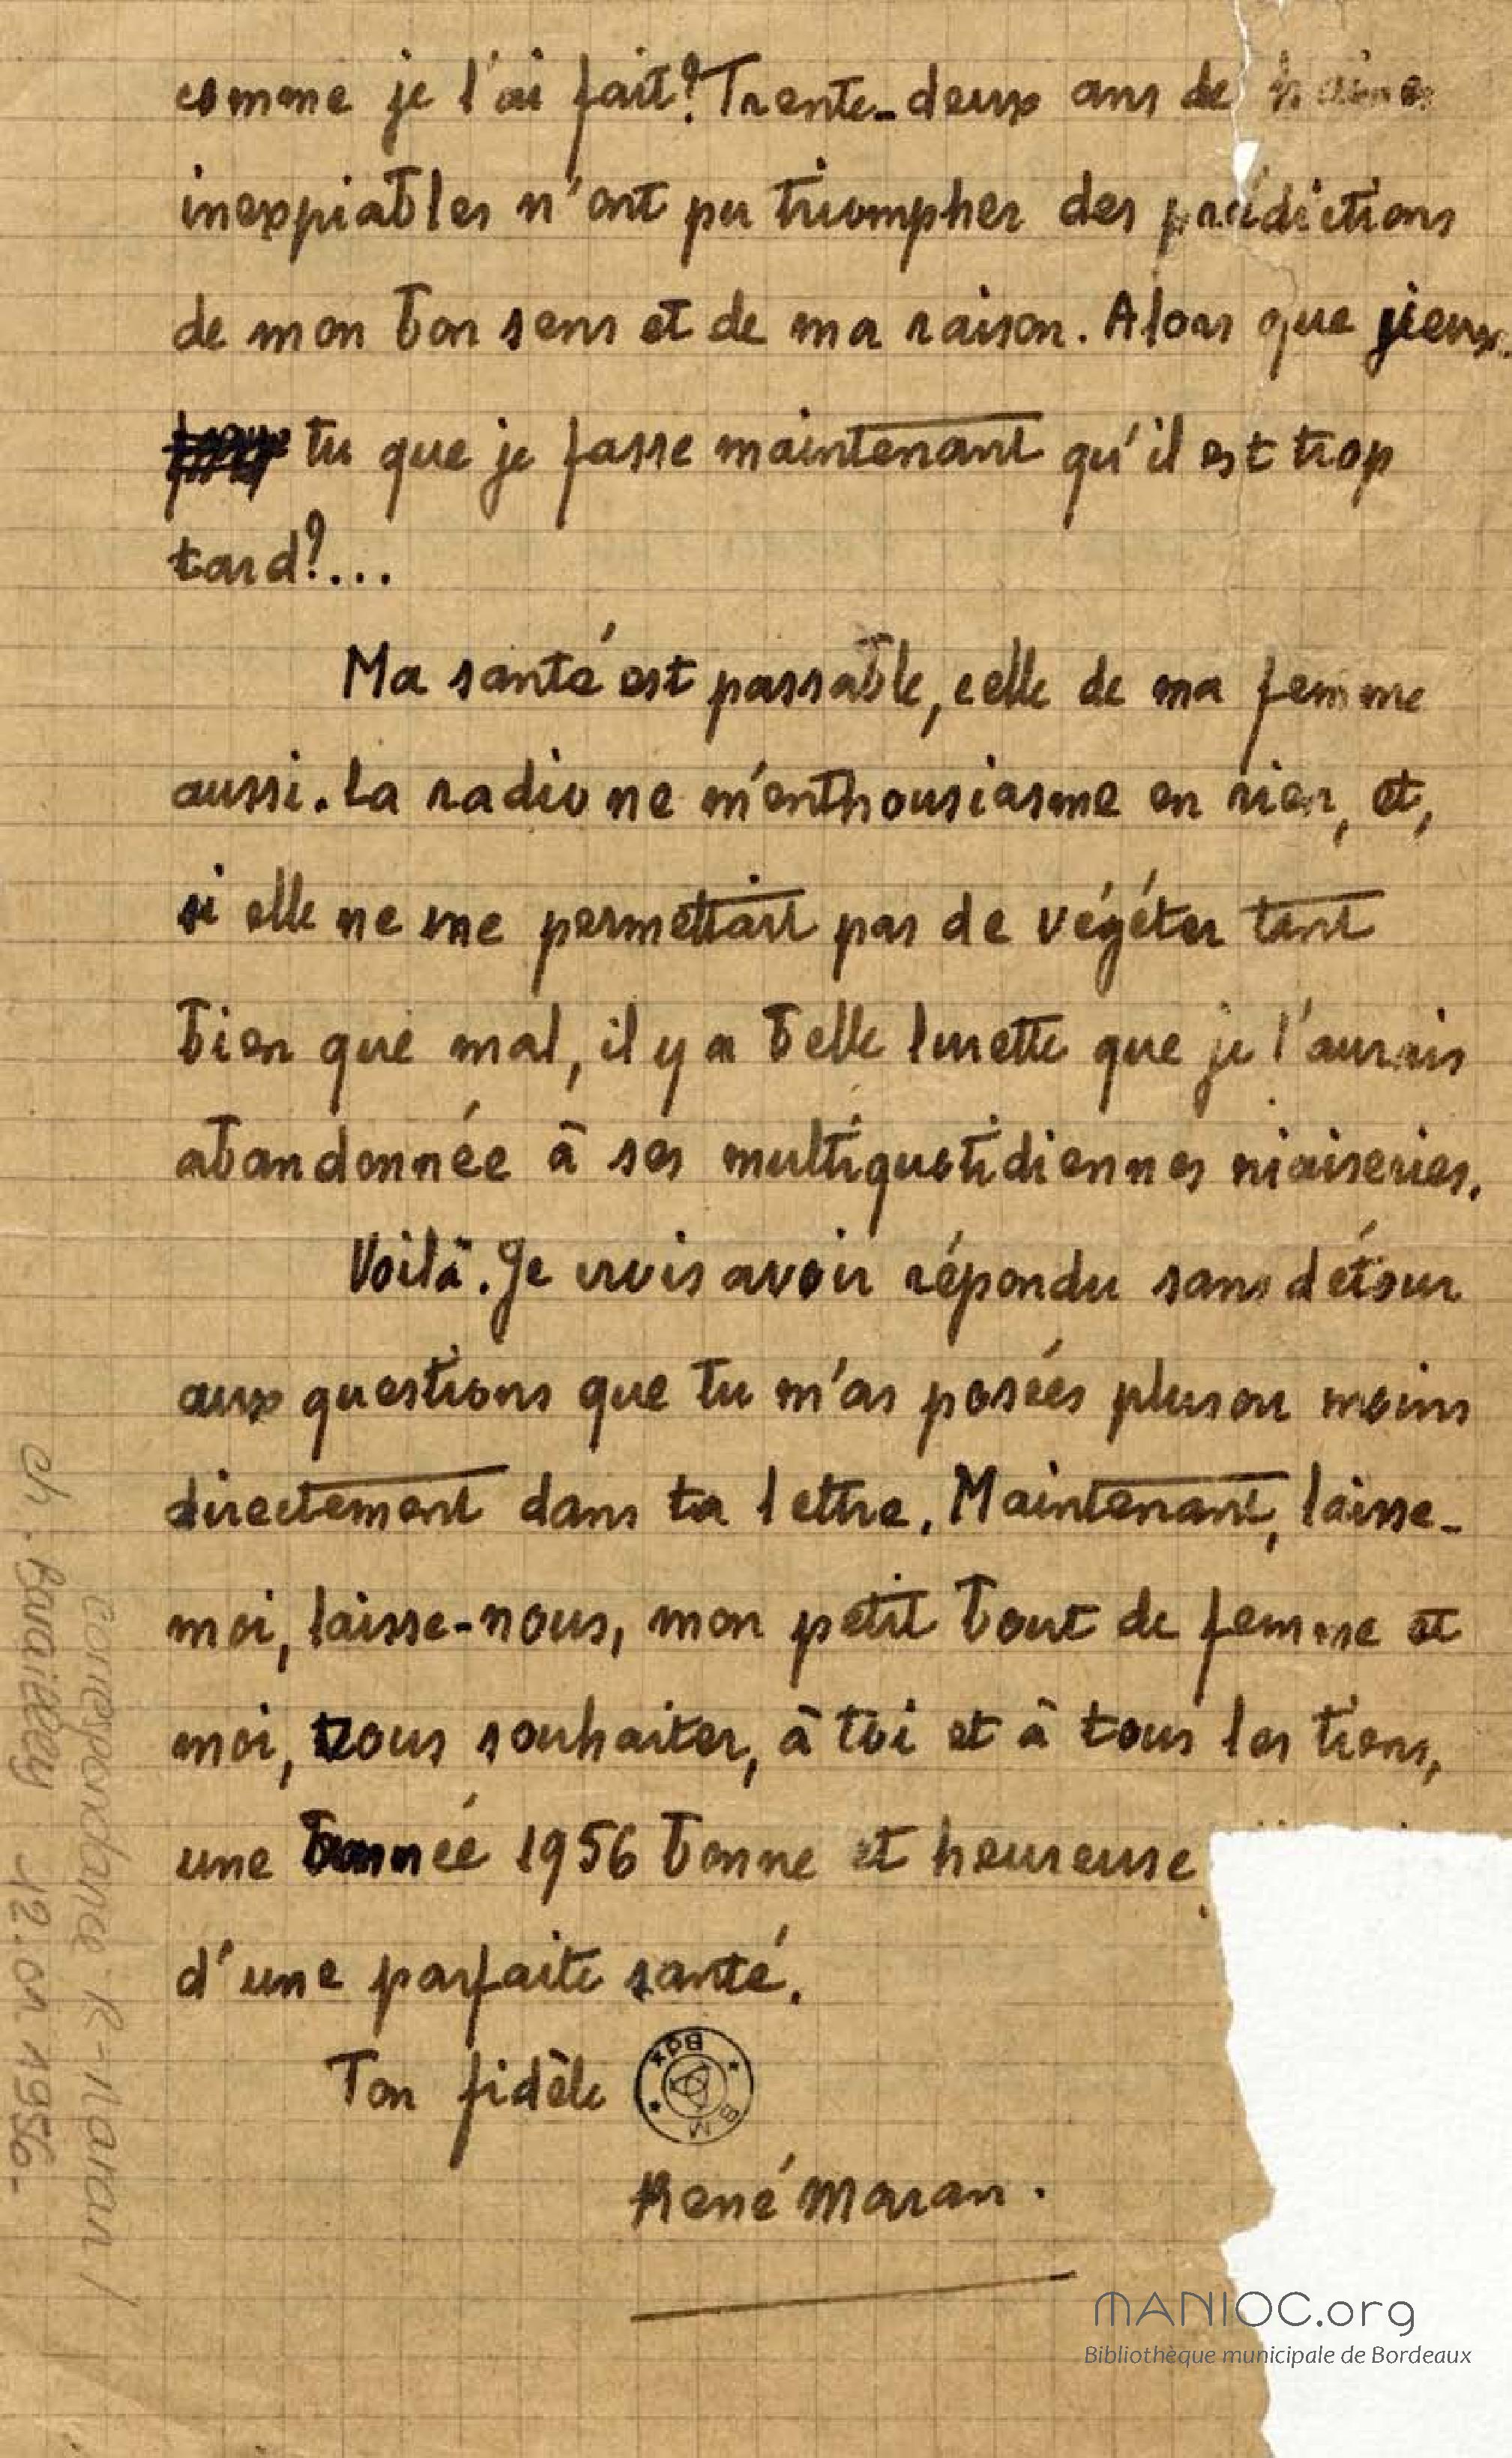 comme je l'ai fait? Trente-deux ans de haines
inexpiables n'ont pu triompher des prédictions
de mon bon sens et de ma raison. Alors que veux-
tu que je fasse maintenant qu'il est trop
tard?...
Ma santé est passable, celle de ma femme
aussi. La radio ne m'enthousiasme en rien, et,
si elle ne me permettait pas de végéter tant
bien que mal, il y a belle lurette que je l'aurais
abandonnée à ses multiquotidiennes niaiseries.
Voilà. Je crois avoir répondu sans détour
aux questions que tu m'as posées plus ou moins
directement dans ta lettre. Maintenant, laisse-
moi, laisse-nous, mon petit bout de femme et
moi, vous souhaiter, à toi et à tous les tiens,
une année 1956 bonne et heureuse
d'une parfaite santé.
Ton fidèle
B.M Bdx
René Maran.
correspondance R. Maran /
ch. Barailley 12.01 1956.
MANIOC.org
Bibliothèque municipale de Bordeaux